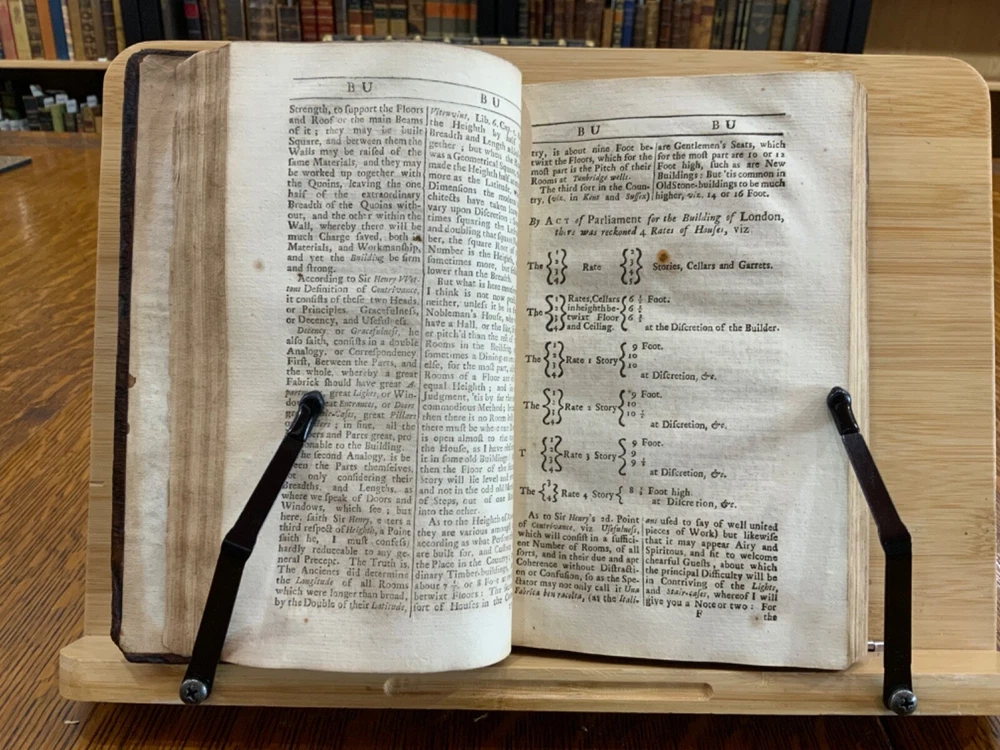 BU
BU
Strength, to support the Floors
and Roof or the main Beams
of it; they may be built
Square, and between them the
Walls may be raised of the
same Materials, and they may
be worked up together with
the Quoins, leaving the one
half of the extraordinary
Breadth of the Quoins with-
out, and the other within the
Wall, whereby there will be
much Charge saved, both in
Materials, and Workmanship,
and yet the Building be firm
and strong.
According to Sir Henry Wot-
tons Definition of Contrivance,
it consists of these two Heads
or Principles. Gracefulness,
or Decency, and Usefulness.
Decency or Gracefulness, he
also saith, consists in a double
Analogy, or Correspondency
First, Between the Parts, and
the whole, whereby a great
Fabrick should have great
great Lights, or Win-
great Entrances, or Doors
great Pillars
in fine, all the
and Parts great, pro
to the Building.
The second Analogy, is be
the Parts themselves,
only considering their
Breadths, and Lengths, as
where we speak of Doors and
Windows, which see; but
here, saith Sir Henry, enters a
third respect of Heighth, a Point
saith he, I must confess)
hardly reduceable to any ge-
neral Precept. The Truth is,
The Ancients did determine
the Longitude of all Rooms
which were longer than broad,
by the Double of their Latitude,
Vitruvius, Lib. 6. Cap.
the Heighth by half
Breadth and Length
gether; but when the
was a Geometrical Square,
made the Heighth half
more as the Latitude,
Dimensions the modern
chitects have taken
vary upon Discretion:
times squaring the
and doubling that
ber, the square Root of
Number is the Heighth,
sometimes more, but
lower than the Breadth.
But what is here
I think is not now
neither, unless it be in
Nobleman's House,
have a Hall, or the
er pitch'd than the rest of
Rooms in the Building,
sometimes a Dining
else, for the most part,
Rooms of a Floor are
equal Heighth; and in
Judgment, 'tis by far the
commodious Method; for
then there is no Room
there must be
is open almost to the
the House, as I have
it in some old Buildings
then the Floor of the
Story will lie level and
and not in the odd old
of Steps, out of one
into the other.
As to the Heighth of
they are various
according as what
are built for, and
the Place in the Country;
dinary Timber-buildings,
about 7 ½, or 8 Foot
betwixt Floors: The
sort of Houses in the
BU
BU
try, is about nine Foot be-
twixt the Floors, which for the
most part is the Pitch of their
Rooms at Tunbridge wells.
The third sort in the Coun-
try, (viz. in Kent and Sussex)
are Gentlemen's Seats, which
for the most part are 10 or 12
Foot high, such as are New
Buildings: But 'tis common in
Old Stone-buildings to be much
higher, viz. 14 or 16 Foot.
By ACT of Parliament for the Building of London,
there was reckoned 4 Rates of Houses, viz
The {1 2 3 4} Rate {2 3 4 4} Stories, Cellars and Garrets.
The {1 2 3 4} Rates, Cellars
in heighth be-
twixt Floor
and Ceiling. {6 ½ Foot.
6 ½
6 ½
at the Discretion of the Builder.
The {1 2 3 4} Rate 1 Story {9 Foot.
10
10
at Discretion, &c.
The {1 2 3 4} Rate 2 Story {9 Foot.
10
10 ½
at Discretion, &c.
T {1 2 3 4} Rate 3 Story {9 Foot.
9
9 ½
at Discretion, &c.
The {3 4} Rate 4 Story {8 ½ Foot high.
at Discretion, &c.
As to Sir Henry's 2d. Point
of Contrivance, viz. Usefulness,
which will consist in a suffici-
ent Number of Rooms, of all
sorts, and in their due and apt
Coherence without Distracti-
on or Confusion, so as the Spe-
ctator may not only call it Una
Fabrica ben raccolta, (as the Itali-
ans used to say of well united
pieces of Work) but likewise
that it may appear Airy and
Spiritous, and fit to welcome
chearful Guests, about which
the principal Difficulty will be
in Contriving of the Lights,
and Stair-cases, whereof I will
give you a Note or two: For
F
the